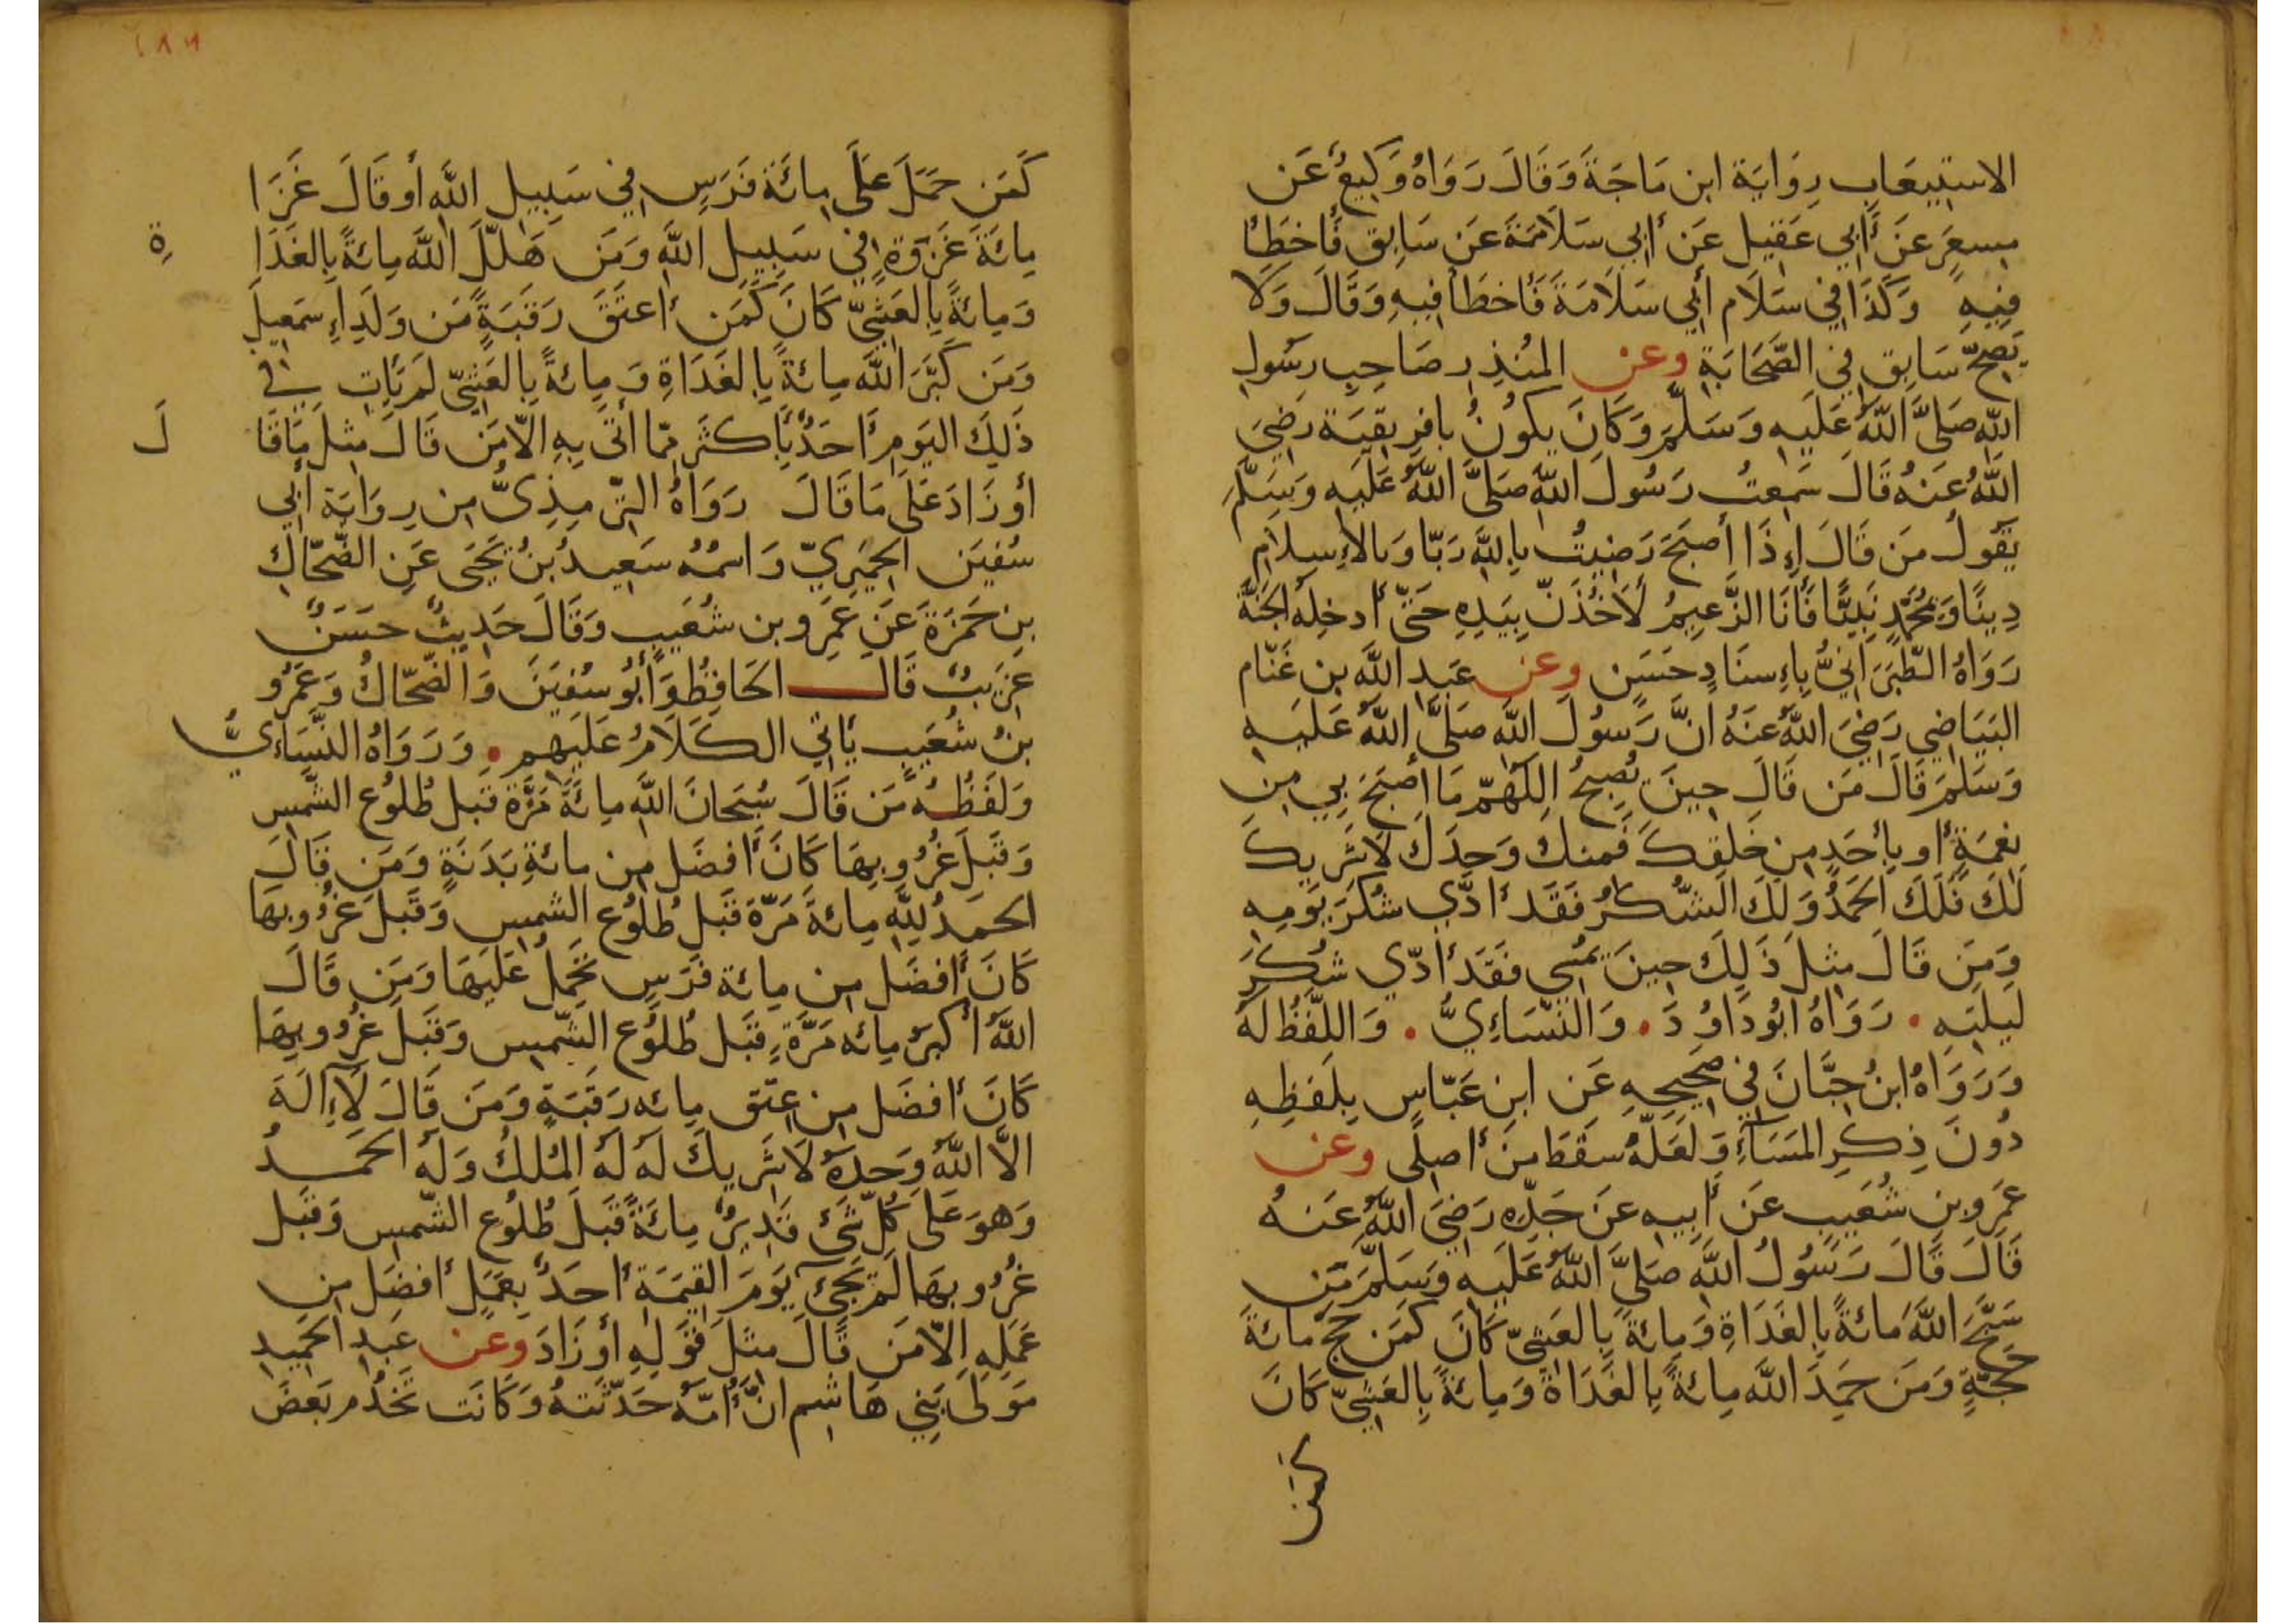 الاستيعاب رواية ابن ماجة وقال رواه وكيع عن
مسعر عن أبي عقيل عن أبي سلامة عن سابق فأخطأ
فيه وكذا في سلام أبي سلامة فأخطأ فيه وقال ولا
يصح سابق في الصحابة وعن المنذر صاحب رسول
الله صلى الله عليه وسلم وكان يكون بافريقية رضي
الله عنه قال سمعت رسول الله صلى الله عليه وسلم
يقول من قال إذا أصبح رضيت بالله ربا وبالإسلام
دينا وبمحمد نبيا فأنا الزعيم لأخذن بيده حتى أدخله الجنة
رواه الطبراني بإسناد حسن وعن عبد الله بن غنام
البياضي رضي الله عنه ان رسول الله صلى الله عليه
وسلم قال من قال حين يصبح اللهم ما أصبح بي من
نعمة أو بأحد من خلقك فمنك وحدك لا شريك
لك فلك الحمد ولك الشكر فقد أدي شكر يومه
ومن قال مثل ذلك حين يمسي فقد أدي شكر
ليلته . رواه ابو داود . والنسائي . واللفظ له
ورواه ابن حبان في صحيحه عن ابن عباس بلفظه
دون ذكر المساء ولعله سقط من أصلي وعن
عمرو بن شعيب عن أبيه عن جده رضي الله عنه
قال قال رسول الله صلى الله عليه وسلم من
سبح الله مائة بالغداة ومائة بالعشي كان كمن حج مائة
حجة ومن حمد الله مائة بالغداة ومائة بالعشي كان
كمن
١٨٢
كمن حمل على مائة فرس في سبيل الله أو قال غزا
مائة غزوة في سبيل الله ومن هلل الله مائة بالغدا ة
ومائة بالعشي كان كمن أعتق رقبة من ولد إسمعيل
ومن كبر الله مائة بالغداة ومائة بالعشي لم يأت في
ذلك اليوم أحد بأكثر مما أتى به الا من قال مثل ما قا ل
أو زاد على ما قال رواه الترمذي من رواية أبي
سفين الحميري واسمه سعيد بن يحيى عن الضحاك
بن حمزة عن عمرو بن شعيب وقال حديث حسن
غريب قال الحافظ وأبو سفين والضحاك وعمرو
بن شعيب يأتي الكلام عليهم . ورواه النسائي
ولفظه من قال سبحان الله مائة مرة قبل طلوع الشمس
وقبل غروبها كان أفضل من مائة بدنة ومن قال
الحمد لله مائة مرة قبل طلوع الشمس وقبل غروبها
كان أفضل من مائة فرس يحمل عليها ومن قال
الله أكبر مائه مرة قبل طلوع الشمس وقبل غروبها
كان أفضل من عتق مائه رقبة ومن قال لا إله
الا الله وحده لا شريك له له الملك وله الحمد
وهو على كل شئ قدير مائة قبل طلوع الشمس وقبل
غروبها لم يجئ يوم القيمة أحد بعمل أفضل من
عمله إلا من قال مثل قوله أو زاد وعن عبد الحميد
مولى بني هاشم ان أمه حدثته وكانت تخدم بعض